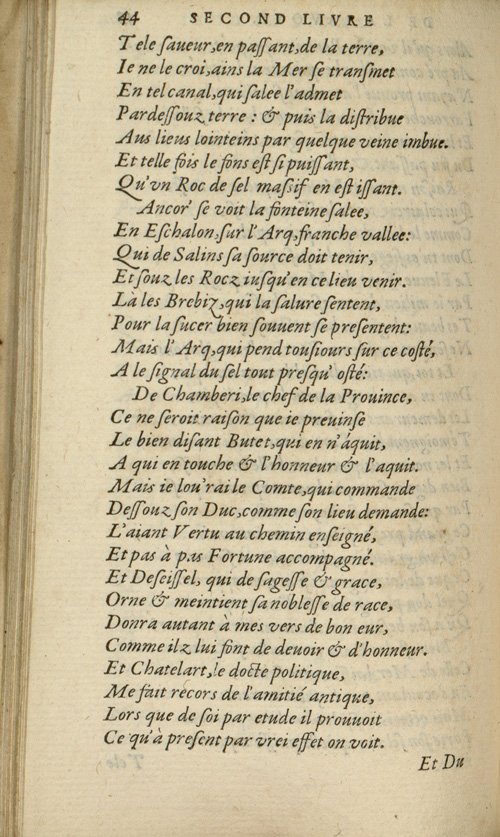 44 SECOND LIVRE
Tele ſaueur, en paſſant, de la terre,
Ie ne le croi, ains la Mer ſe tranſmet
En tel canal, qui ſalee l'admet
Pardeſſouz terre : & puis la diſtribue
Aus lieus lointeins par quelque veine imbue.
Et telle fois le fons eſt ſi puiſſant,
Qu'vn Roc de ſel maſsif en eſt iſſant.
Ancor' ſe voit la fonteine ſalee,
En Eſchalon, ſur l'Arq, franche vallee:
Qui de Salins ſa ſource doit tenir,
Et ſouz les Rocz iuſqu'en ce lieu venir.
Là les Brebiz, qui la ſalure ſentent,
Pour la ſucer bien ſouuent ſe preſentent:
Mais l'Arq, qui pend touſiours ſur ce coſté,
A le ſignal du ſel tout preſqu' oſté:
De Chamberi, le chef de la Prouince,
Ce ne ſeroit raiſon que ie preuinſe
Le bien diſant Butet, qui en n'áquit,
A qui en touche & l'honneur & l'aquit.
Mais ie lou'rai le Comte, qui commande
Deſſouz ſon Duc, comme ſon lieu demande:
L'aiant Vertu au chemin enſeigné,
Et pas à pas Fortune accompagné.
Et Deſeiſſel, qui de ſageſſe & grace,
Orne & meintient ſa nobleſſe de race,
Donra autant à mes vers de bon eur,
Comme ilz lui font de deuoir & d'honneur.
Et Chatelart, le docte politique,
Me fait récors de l'amitié antique,
Lors que de ſoi par etude il prouuoit
Ce qu'à preſent par vrei effet on voit.
Et Du